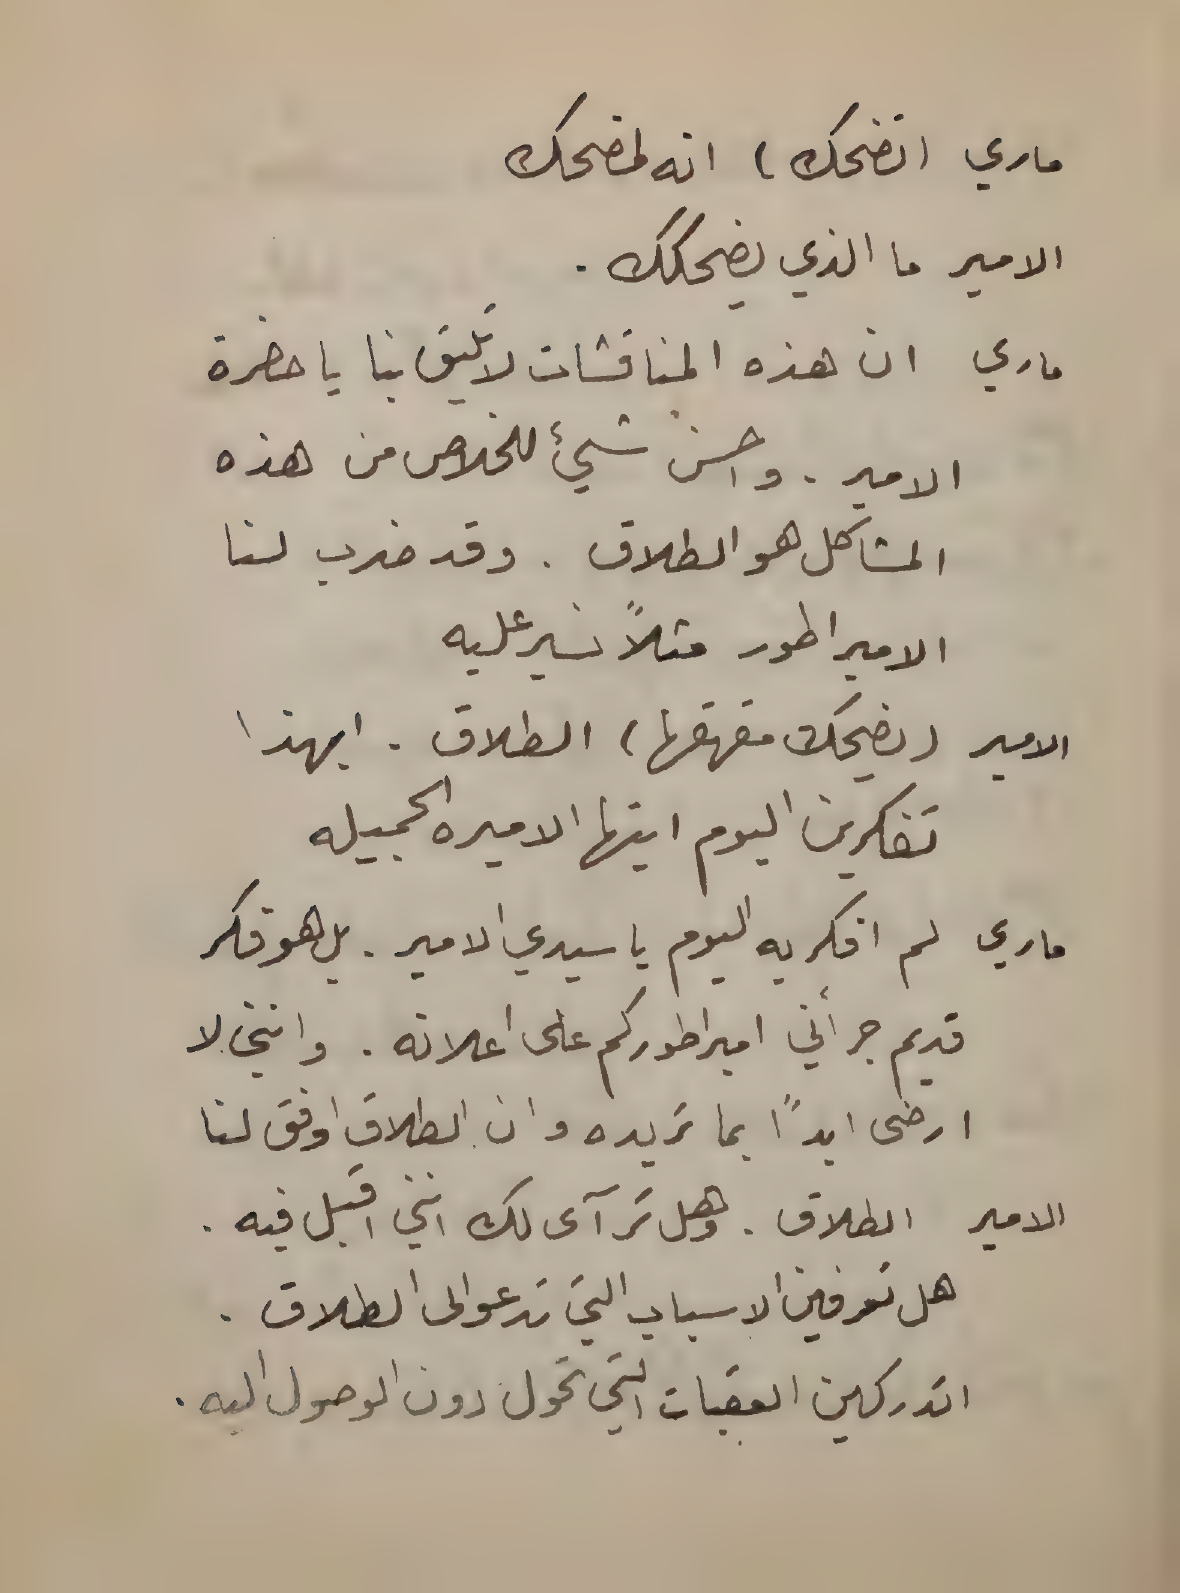 ماري (تضحك) انه لمضحك
الامير ما الذي يضحكك .
ماري ان هذه المناقشات لا تليق بنا يا حضرة
الامير . واحسن شيئ للخلاص من هذه
المشاكل هو الطلاق . وقد ضرب لنا
الامبراطور مثلاً نسير عليه
الامير (يضحك مقهقها) الطلاق . ابهذا
تفكرين اليوم ايتها الاميره الجميله
ماري لم افكر به اليوم يا سيدي الامير . بل هو فكر
قديم جرأني امبراطوركم على اعلانه . وانني لا
ارضى ابداً بما تريده وان الطلاق اوفق لنا
الامير الطلاق . وهل ترآى لك انني اقبل فيه .
هل تعرفين الاسباب التي تدعو الى الطلاق .
اتدركين العقبات التي تحول دون الوصول اليه .